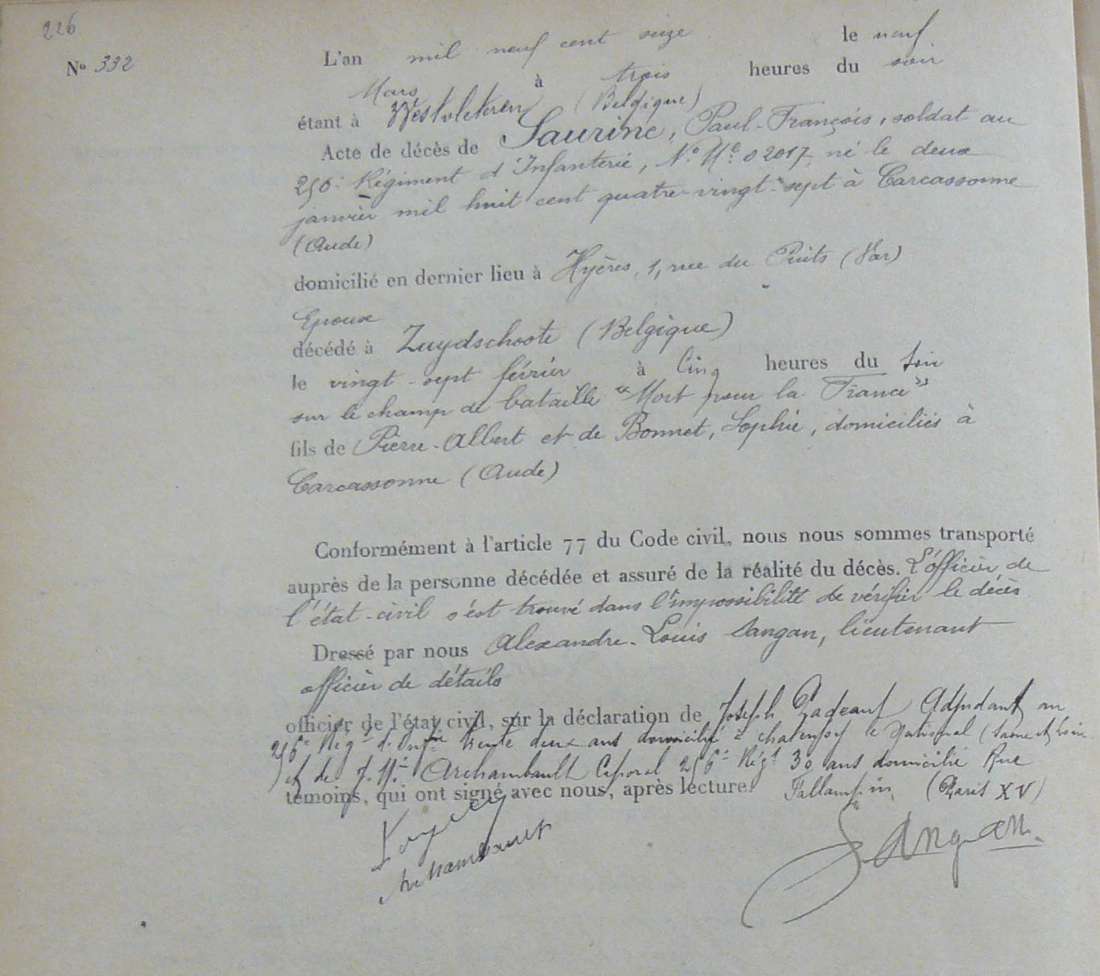 226
N° 332
L'an mil neuf cent seize le neuf
Mars à trois heures du soir
étant à Westvleteren (Belgique)
Acte de décès de Saurine, Paul-François, soldat au
Régiment d'Infanterie, 02017 né le deux
janvier mil huit cent quatre-vingt-sept à Carcassonne
(Aude)
domicilié en dernier lieu à Hyères, 1, rue du Puits (Var)
Epoux
décédé à Zuydschoote (Belgique)
le vingt-sept février à Cinq heures du soir
sur le champ de bataille "Mort pour la France"
fils de Pierre-Albert et de Bonnet, Sophie, domiciliés à
Carcassonne (Aude)
Conformément à l'article 77 du Code civil, nous nous sommes transporté
auprès de la personne décédée et assuré de la réalité du décès. L'officier de
l'état-civil s'est trouvé dans l'impossibilité de vérifier le décès
Dressé par nous Alexandre-Louis Sangan, lieutenant
officier de détails
officier de l'état civil, sur la déclaration de Joseph Adjudant au
Régt d'Infie trente deux ans domicilié à le National (Saone et Loire
et de Archambault Caporal Régt 30 ans domicilié Rue
témoins, qui ont signé avec nous, après lecture. Fallempin (Paris XV)
Archambault
Sangan